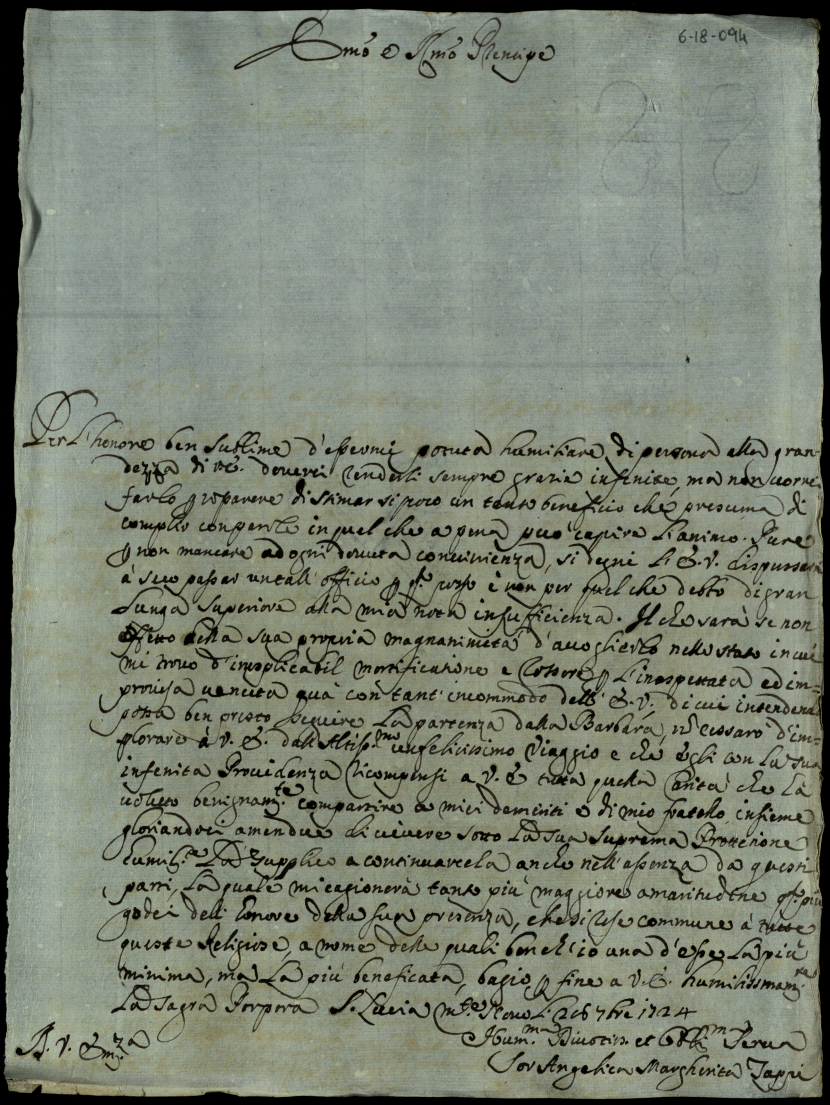 6-18-094
Emo e Rmo Prencipe
Per l'honore ben sublime d'essermi potuta humiliare di persona alla gran=
dezza di V.E. doverei renderli sempre grazie infinite, ma non vorrei
farlo p parere di stimar si poco un tanto beneficio che presuma di
complir con parole in quel che a pena può capire l'animo. Pure
p non mancare ad ogni dovuta convinienza, si degni l'E.V. dispensarmi
à suo passar un tall'officio p è non per quel che debbo di gran
lunga superiore alla mia nota insufficienza. Il che sarà se non
effetto della sua propria magnanimità d'accoglierlo nello stato in cui
mi trovo d'inesplicabil mortificatione e rossore p l'inaspettata ed im=
provisa venuta quà con tant'incommodo dell'E.V. di cui intendendo
possa ben presto seguire la partenza dalla Barbara, n cessarò d'im=
plorare à V.E. dall'Altiss.mo un felicissimo viaggio e che egli con la sua
infenita Providenza ricompensi a V.E. tutta quella carità che la
voluto benignam.te compartire a miei dementi e di mio fratello insieme
gloriandoci amendue di vivere sotto la sua suprema Protetione
humil.e la supplico a continuarcela anche nell'assenza da questi
parti, la quale mi cagionerà tanto più maggiore amaritudine più
godei dell'honore della sua presenza, che si rese commune à tutte
queste Religiose, a nome delle quali benche io una d'esse la più
minima, ma la più beneficata, bagio p fine a V.E. humilissimam.te
la sagra Porpora S. Lucia M.te Novo li 26 7bre 1724
D. V. Em.za
Hum.ma Divotiss. et Obb.ma Serva
Sor Angelica Margherita Zappi